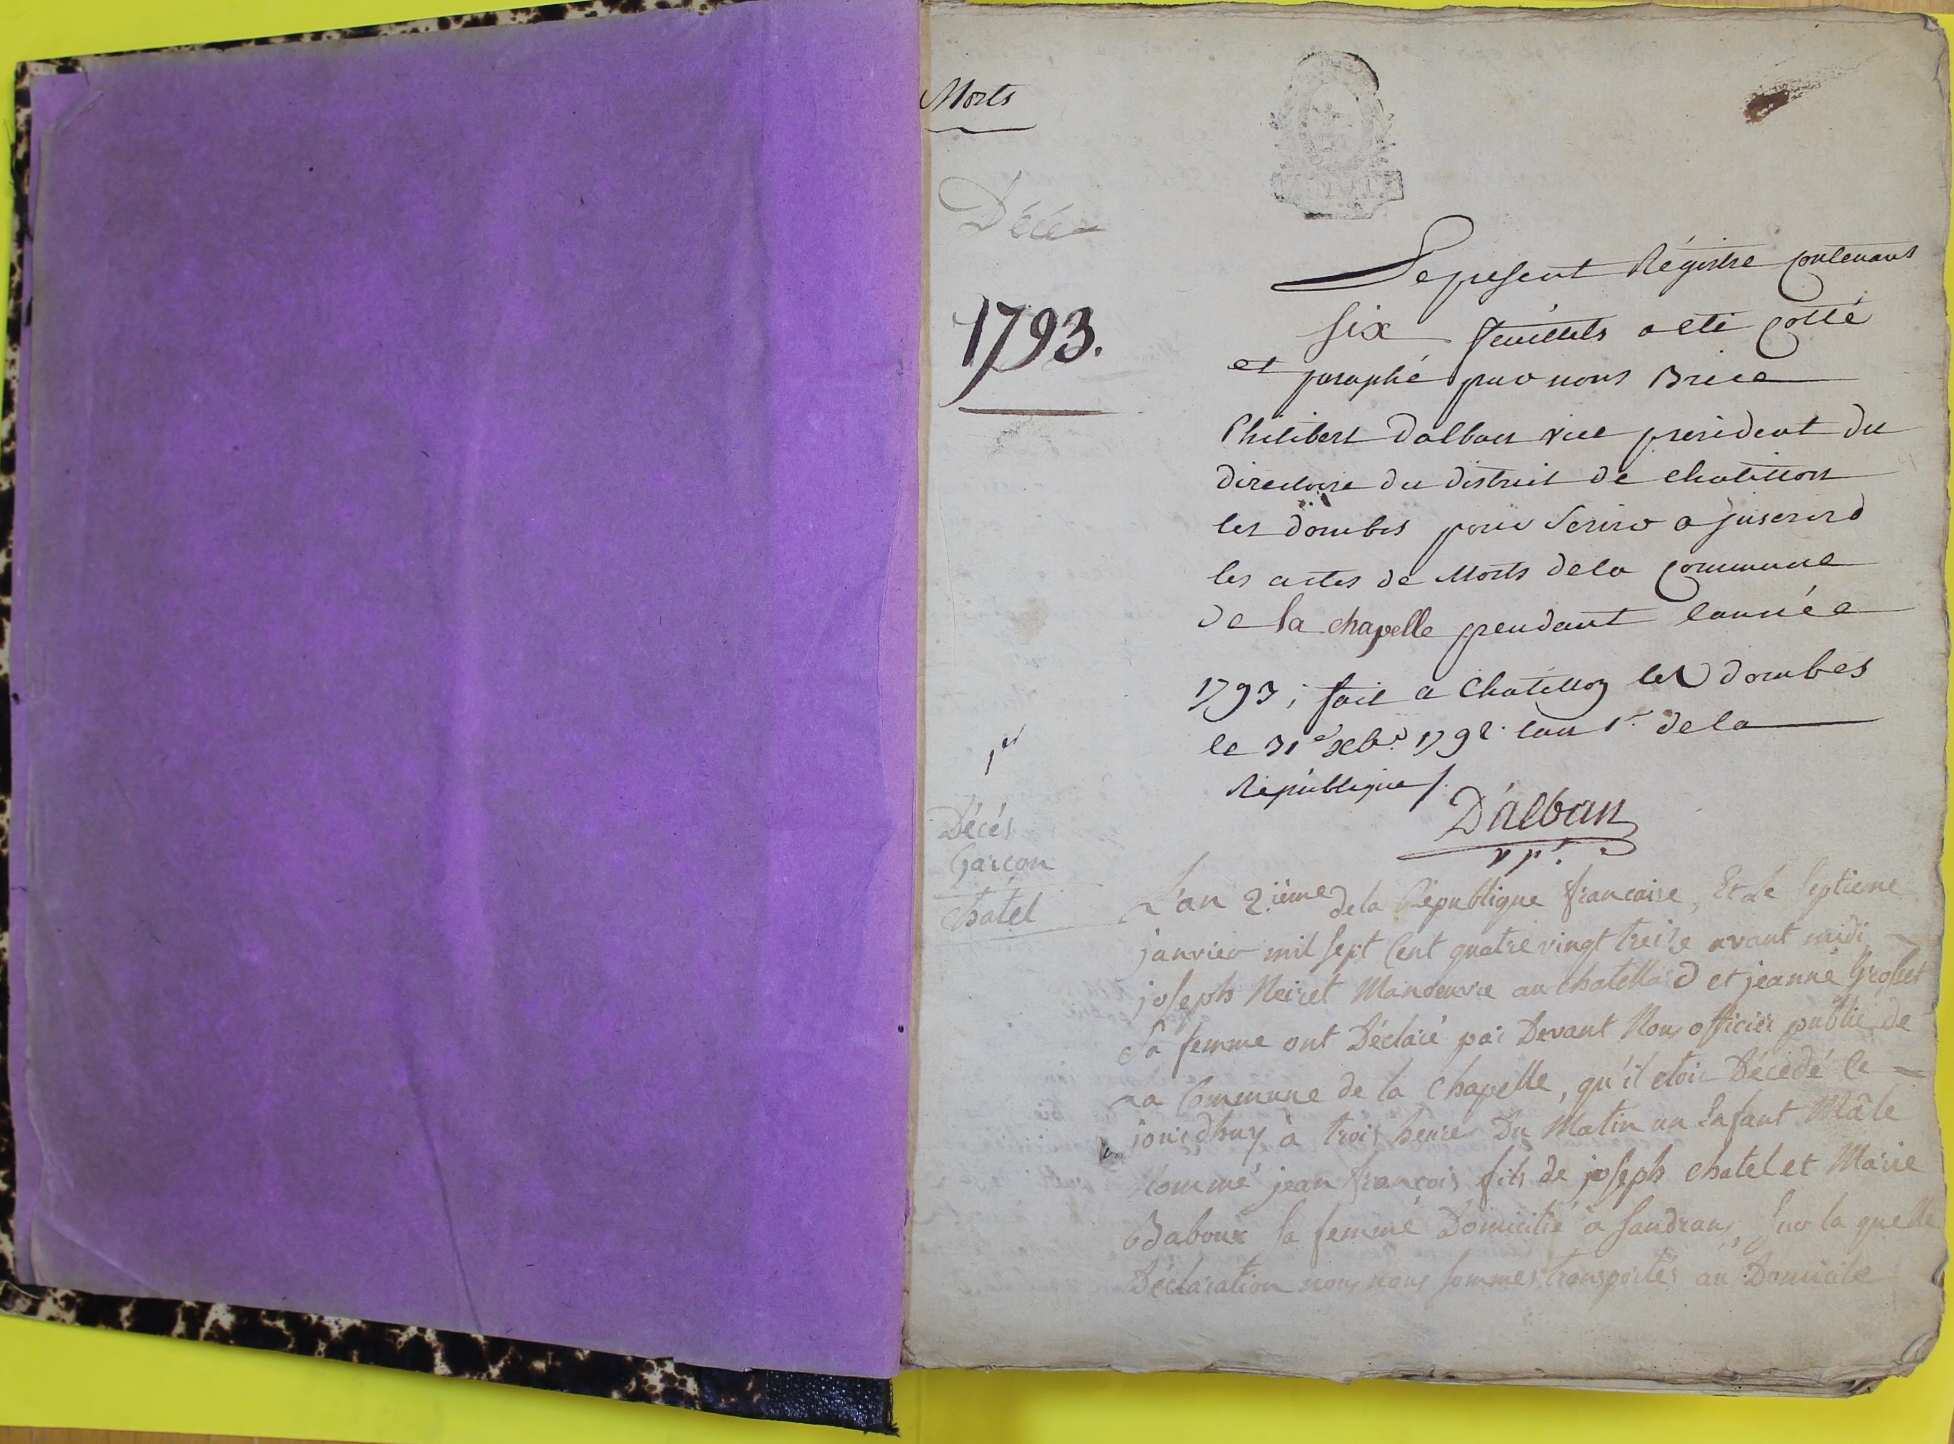 Morts
Décés
1793.
Le present Régistre contenant
six feuillets a eté cotté
et paraphé par nous Brice
Philibert Dalban vice president du
directoire du district de chatillon
les dombes pour servir a jnscrire
les actes de Morts de la commune
de la chapelle pendant lannée
1793, fait a Chatillon les dombes
le 31e xbre 1792. lan 1er de la
République /.
D'alban
v pt.
1er
Décés
Garçon
Chatel
L'an 2.ieme de la République françaire, Et Le septieme
janvier mil sept Cent quatre vingt treize avant midi
joseph Neiret Manoeuvre au chatellard et jeanne
Sa femme ont Déclaré par Devant Nous officier public de
La Commune de la Chapelle, qu'il etoit Décédé le
jourdhuy à trois heure Du Matin un Enfant Mâle
Nommé jean françois fils de joseph chatel et Marie
Baboux sa femme Domicilié à sandrans, Sur la quelle
Déclaration nous nous sommes transportés au Domicile